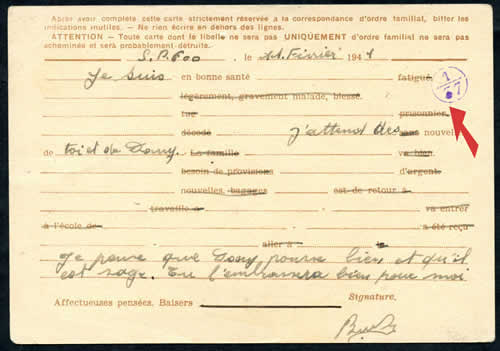 Après avoir complété cette carte strictement réservée à la correspondance d'ordre familial, biffer les
indications inutiles. — Ne rien écrire en dehors des lignes.
ATTENTION - Toute carte dont le libellé ne sera pas UNIQUEMENT d'ordre familial ne sera pas
acheminée et sera probablement détruite.
S.P. 600 , le 11 Février 194 1
Je suis en bonne santé fatigué
légèrement, gravement malade, blessé.
tué prisonnier
décédé j'attend des sans nouvel
de toi et de Dany. La famille va bien
besoin de provisions d'argent
nouvelles, bagages est de retour à
travaille à va entrer
à l'école de a été reçu
aller à le
Je pense que Dany pousse bien et qu'il
est sage. Tu l'embrassera bien pour moi
Affectueuses pensées. Baisers Signature.
1
7